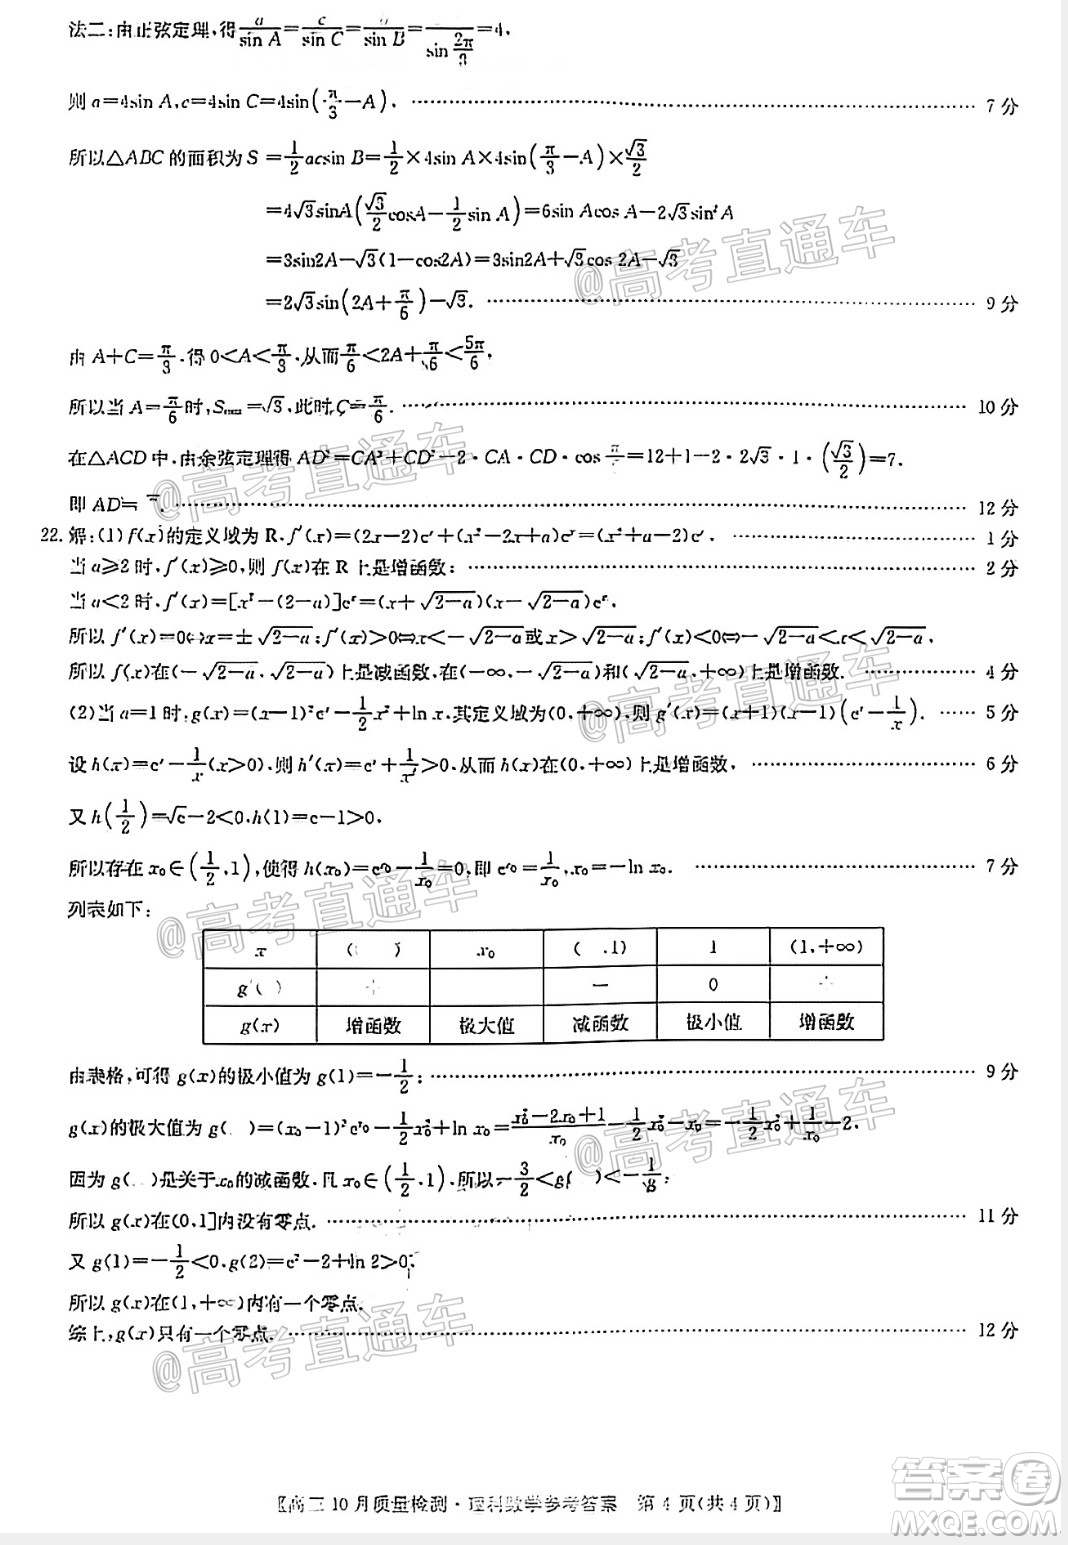 法二:由正弦定理,得 a/sin A = c/sin C = b/sin B = /sin 2π/3 = 4.
则 a=4sin A,c=4sin C=4sin(π/3−A). 7 分
所以△ABC 的面积为 S = 1/2 acsin B = 1/2 ×4sin A×4sin(π/3−A)×√3/2
=4√3sinA(√3/2 cosA−1/2 sin A)=6sin Acos A−2√3sin²A
=3sin2A−√3(1−cos2A)=3sin2A+√3cos 2A−√3
=2√3sin(2A+π/6)−√3. 9 分
由 A+C=π/3,得 0<A<π/3,从而 π/6<2A+π/6<5π/6,
所以当 A=π/6 时,Smax=√3,此时,C=π/6. 10 分
在△ACD 中,由余弦定理得 AD²=CA²+CD²−2·CA·CD·cos π/ =12+1−2·2√3·1·(√3/2)=7.
即 AD= 12 分
22. 解:(1) f(x)的定义域为 R, f′(x)=(2x−2)eˣ+(x²−2x+a)eˣ=(x²+a−2)eˣ. 1 分
当 a≥2 时,f′(x)≥0,则 f(x)在 R 上是增函数; 2 分
当 a<2 时,f′(x)=[x²−(2−a)]eˣ=(x+√2−a)(x−√2−a)eˣ,
所以 f′(x)=0⇔x=±√2−a;f′(x)>0⇔x<−√2−a或x>√2−a;f′(x)<0⇔−√2−a<x<√2−a,
所以 f(x)在(−√2−a,√2−a)上是减函数,在(−∞,−√2−a)和(√2−a,+∞)上是增函数. 4 分
(2)当 a=1 时,g(x)=(x−1)²eˣ−1/2x²+ln x,其定义域为(0,+∞),则 g′(x)=(x+1)(x−1)(eˣ−1/x). 5 分
设 h(x)=eˣ−1/x(x>0),则 h′(x)=eˣ+1/x²>0,从而 h(x)在(0,+∞)上是增函数, 6 分
又 h(1/2)=√e−2<0,h(1)=e−1>0,
所以存在 x₀∈(1/2,1),使得 h(x₀)=eˣ⁰−1/x₀=0,即 eˣ⁰=1/x₀,x₀=−ln x₀. 7 分
列表如下:
x ( ) x₀ ( ,1) 1 (1,+∞)
g′( ) + − 0 +
g(x) 增函数 极大值 减函数 极小值 增函数
由表格,可得 g(x)的极小值为 g(1)=−1/2; 9 分
g(x)的极大值为 g( )=(x₀−1)²eˣ⁰−1/2x₀²+ln x₀=x₀²−2x₀+1/x₀−1/2x₀²−x₀=−1/2x₀²+1/x₀−2.
因为 g( )是关于 x₀的减函数,且 x₀∈(1/2,1),所以−3/2<g( )<−1/8;
所以 g(x)在(0,1]内没有零点. 11 分
又 g(1)=−1/2<0,g(2)=e²−2+ln 2>0,
所以 g(x)在(1,+∞)内有一个零点.
综上,g(x)只有一个零点. 12 分
【高三 10 月质量检测·理科数学参考答案 第 4 页(共 4 页)】
@高考直通车
@高考直通车
@高考直通车
@高考直通车
@高考直通车
@高考直通车
@高考直通车
答案卷
MXQE.COM